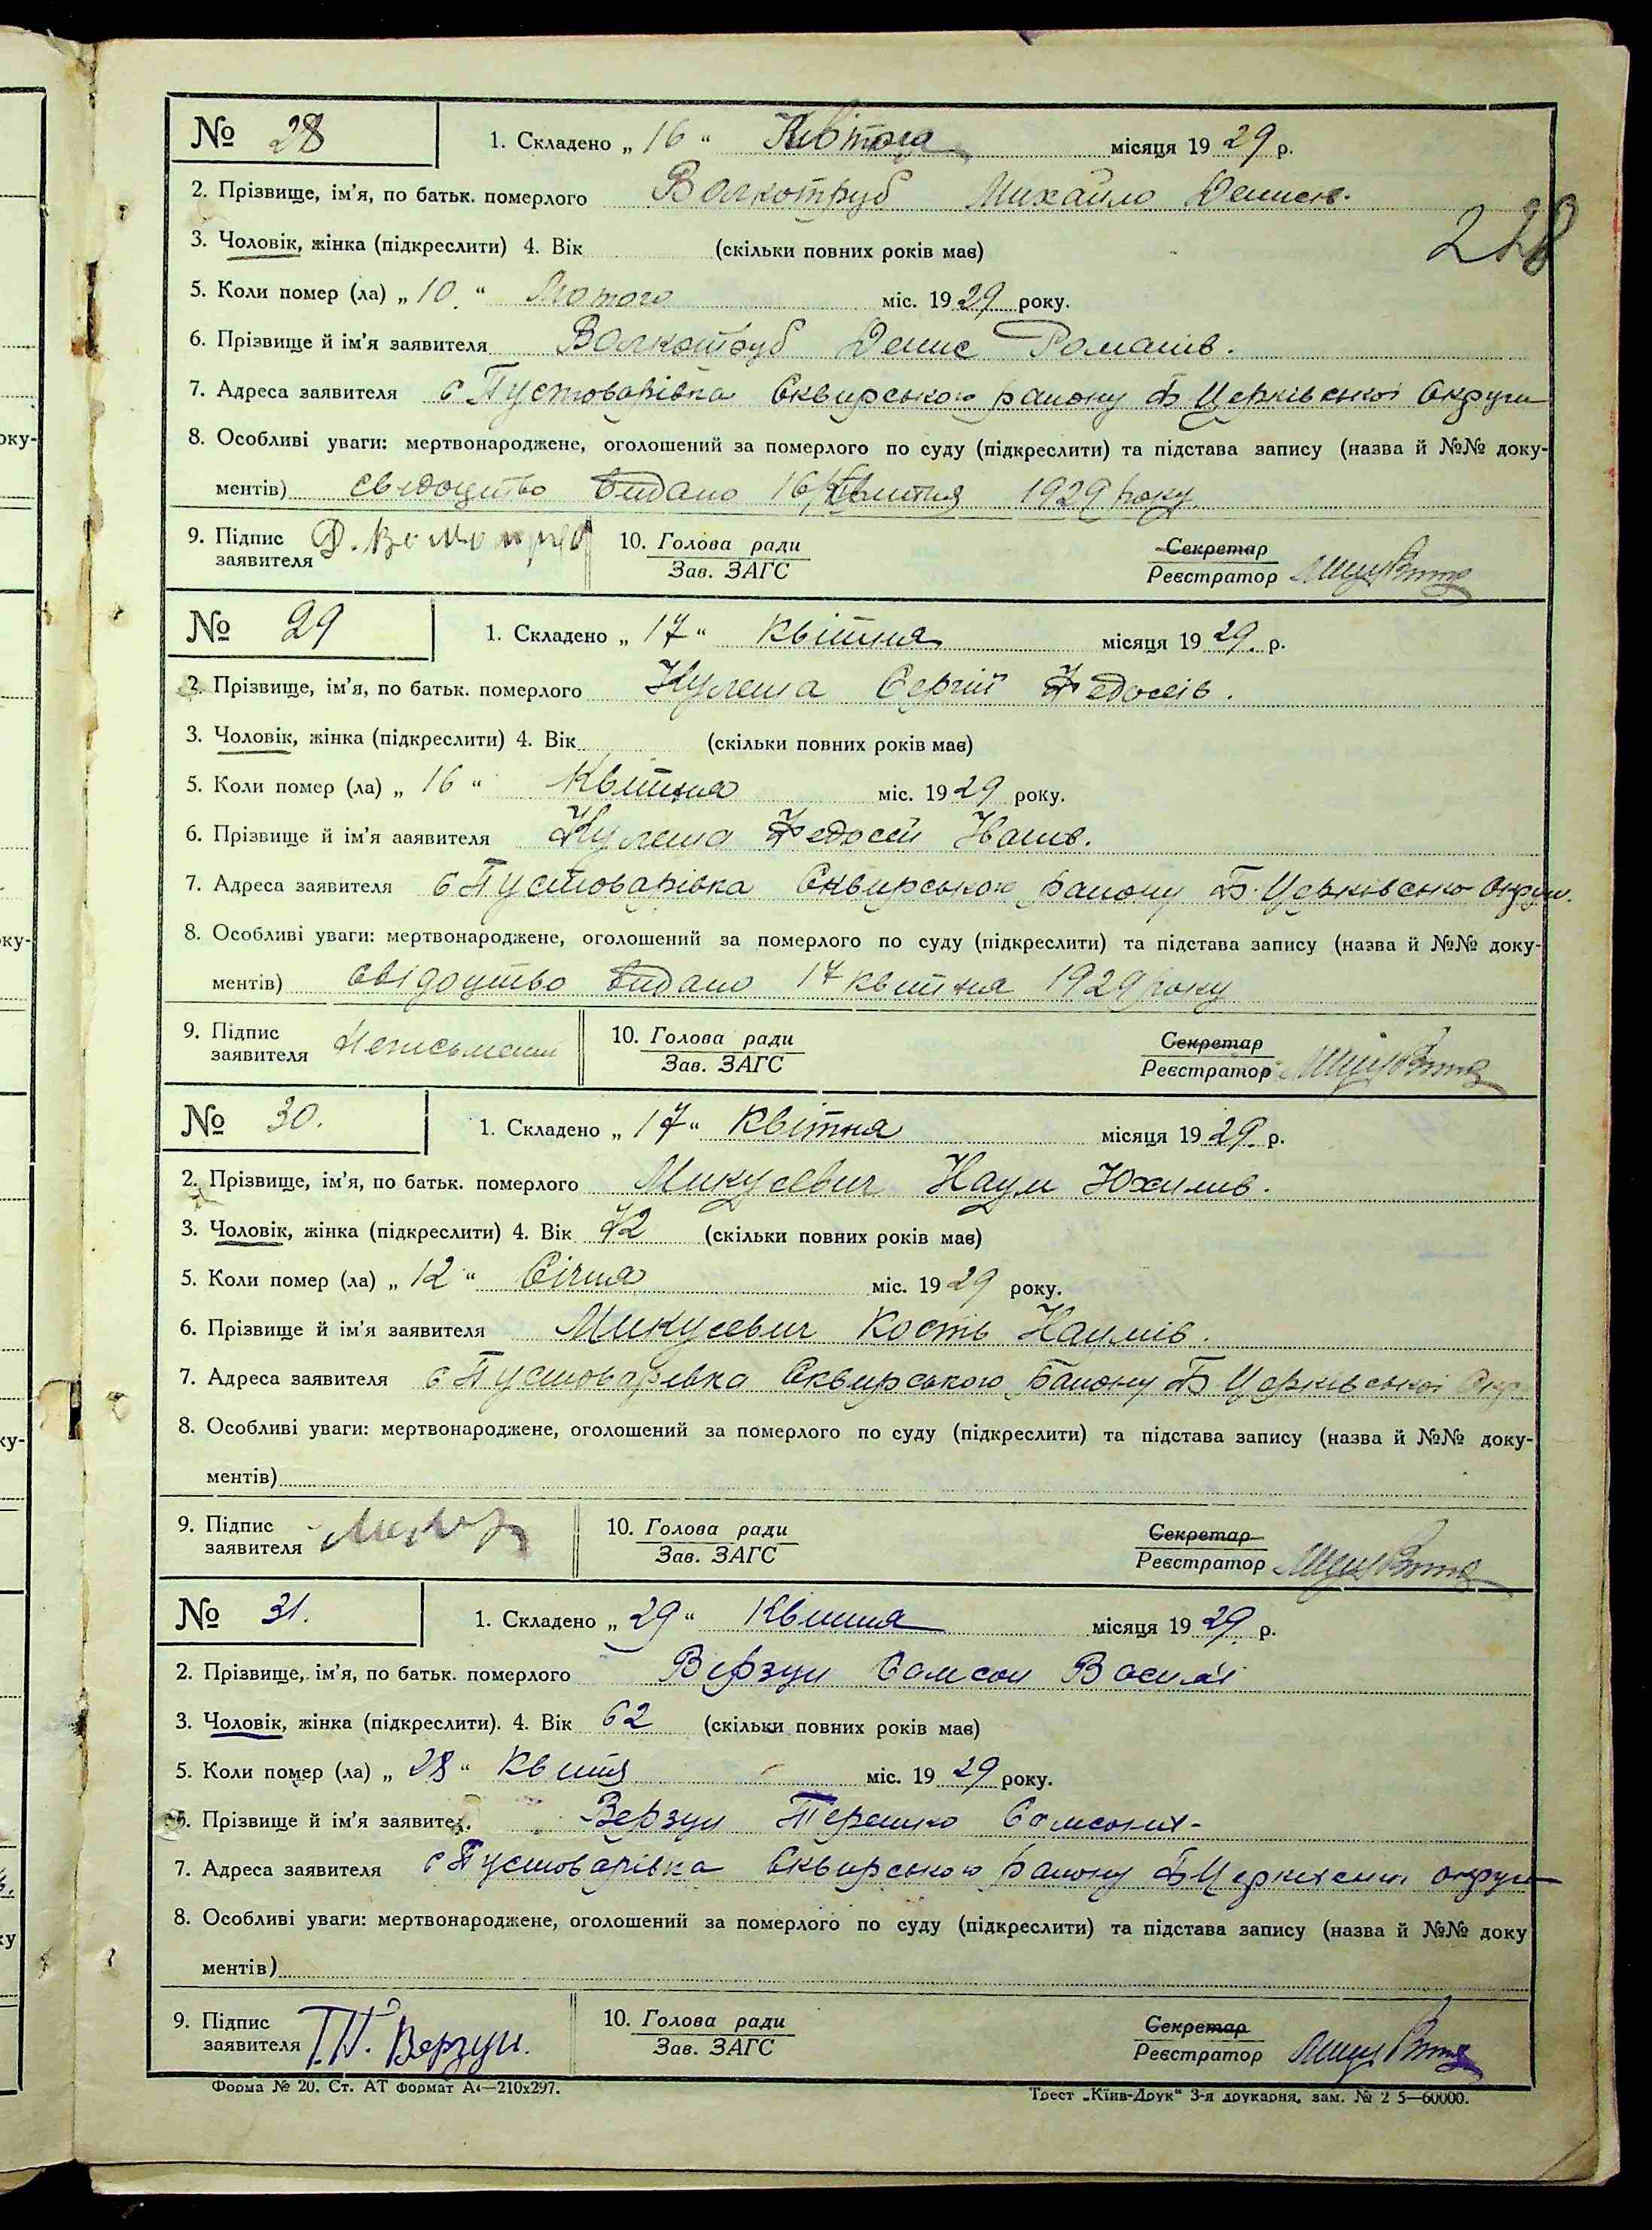 № 28 1. Складено „ 16 “ Квітня місяця 19 29 р.
2. Прізвище, ім’я, по батьк. померлого Волкотруб Михайло Денисів.
228
3. Чоловік, жінка (підкреслити) 4. Вік (скільки повних років має)
5. Коли помер (ла) „ 10 “ Лютого міс. 19 29 року.
6. Прізвище й ім’я заявителя Волкотруб Денис Романів.
7. Адреса заявителя с Пустоварівка Сквирського району Б Церківської Округи
8. Особливі уваги: мертвонароджене, оголошений за померлого по суду (підкреслити) та підстава запису (назва й №№ доку-
ментів) свідоцтво видано 16 Квітня 1929 року
9. Підпис 10. Голова ради Секретар
заявителя Зав. ЗАГС Реєстратор
№ 29 1. Складено „ 17 “ Квітня місяця 19 29. р.
2. Прізвище, ім’я, по батьк. померлого Кулеша Сергій Федосіїв.
3. Чоловік, жінка (підкреслити) 4. Вік (скільки повних років має)
5. Коли помер (ла) „ 16 “ Квітня міс. 19 29 року.
6. Прізвище й ім’я заявителя Кулеша Федосій
7. Адреса заявителя с Пустоварівка Сквирського району Б. Церківсько Округи.
8. Особливі уваги: мертвонароджене, оголошений за померлого по суду (підкреслити) та підстава запису (назва й №№ доку-
ментів) свідоцтво видано 17 квітня 1929 року
9. Підпис Неписьмений 10. Голова ради Секретар
заявителя Зав. ЗАГС Реєстратор
№ 30. 1. Складено „ 17 “ Квітня місяця 19 29. р.
2. Прізвище, ім’я, по батьк. померлого Микусевич Наум Юхимів.
3. Чоловік, жінка (підкреслити) 4. Вік 72 (скільки повних років має)
5. Коли помер (ла) „ 12 “ Січня міс. 19 29 року.
6. Прізвище й ім’я заявителя Микусевич Кость Наумів.
7. Адреса заявителя с Пустоварівка Сквирського Району Б Церківської Окр
8. Особливі уваги: мертвонароджене, оголошений за померлого по суду (підкреслити) та підстава запису (назва й №№ доку-
ментів)
9. Підпис 10. Голова ради Секретар
заявителя Зав. ЗАГС Реєстратор
№ 31. 1. Складено „ 29 “ Квітня місяця 19 29. р.
2. Прізвище, ім’я, по батьк. померлого Верзун Самсон
3. Чоловік, жінка (підкреслити). 4. Вік 62 (скільки повних років має)
5. Коли помер (ла) „ 28 “ Квітня міс. 19 29 року.
6. Прізвище й ім’я заявите Верзун Терешко Самсонів-
7. Адреса заявителя с Пустоварівка Сквирського Району Б Церківської округи
8. Особливі уваги: мертвонароджене, оголошений за померлого по суду (підкреслити) та підстава запису (назва й №№ доку
ментів)
9. Підпис Т.К. Верзун. 10. Голова ради Секретар
заявителя Зав. ЗАГС Реєстратор
Форма № 20. Ст. АТ Формат А4—210х297. Трест „Київ-Друк“ 3-я друкарня, зам. № 2 5—60000.